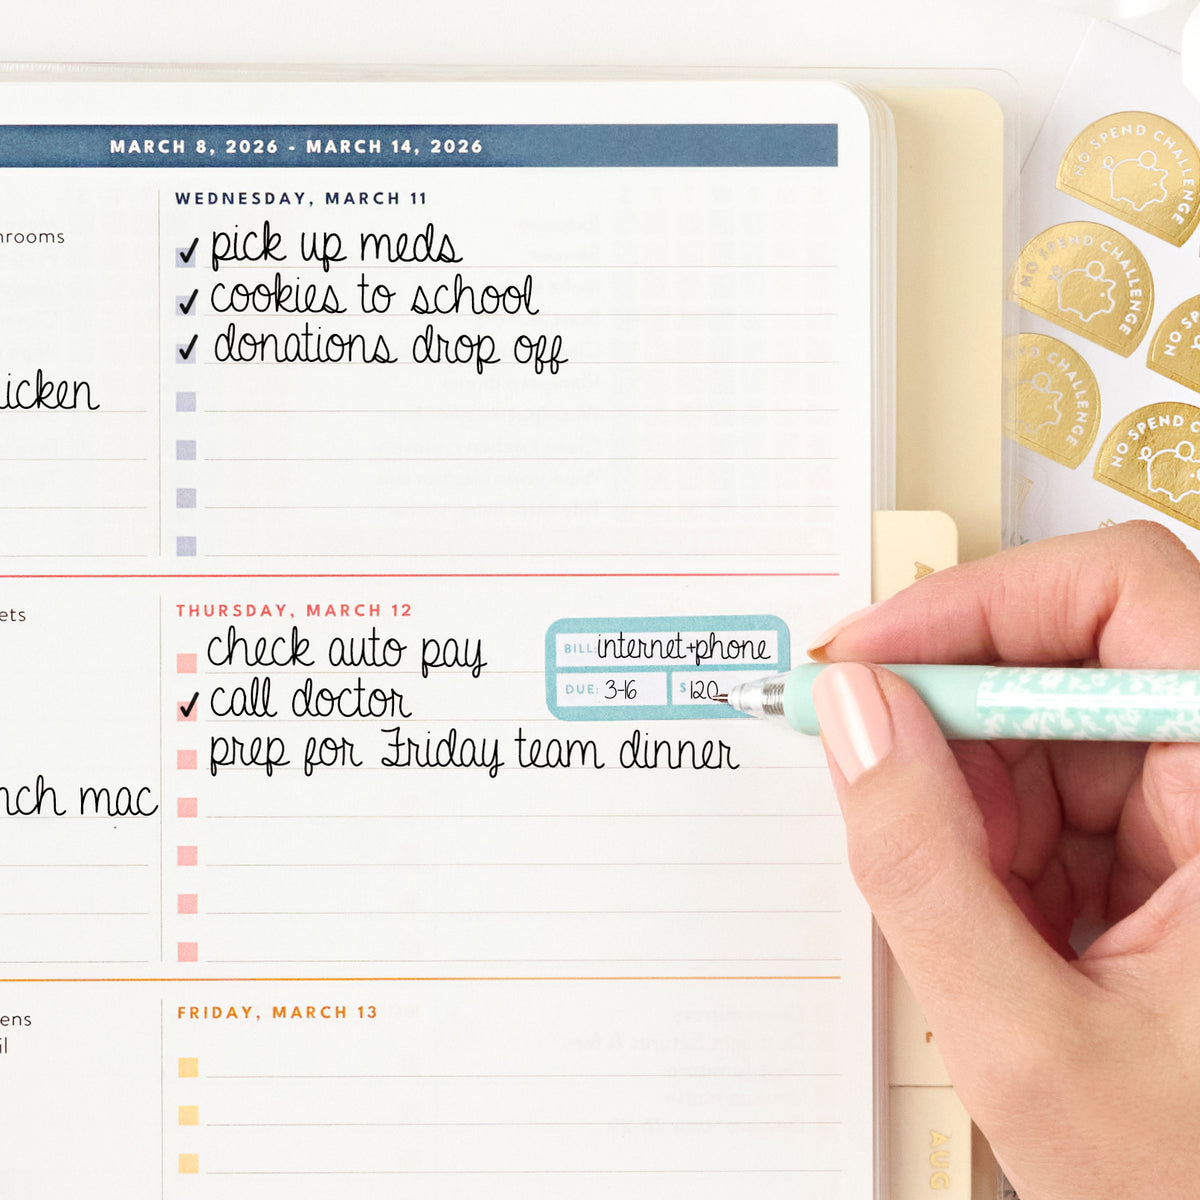 MARCH 8, 2026 - MARCH 14, 2026
WEDNESDAY, MARCH 11
pick up meds
cookies to school
donations drop off
THURSDAY, MARCH 12
check auto pay
call doctor
prep for Friday team dinner
BILL: internet+phone
DUE: 3-16
$120
FRIDAY, MARCH 13
icken
ets
nch mac
ens
NO SPEND CHALLENGE
NO SPEND CHALLENGE
CHALLENGE
NO SPEND C
NO SP
AUG